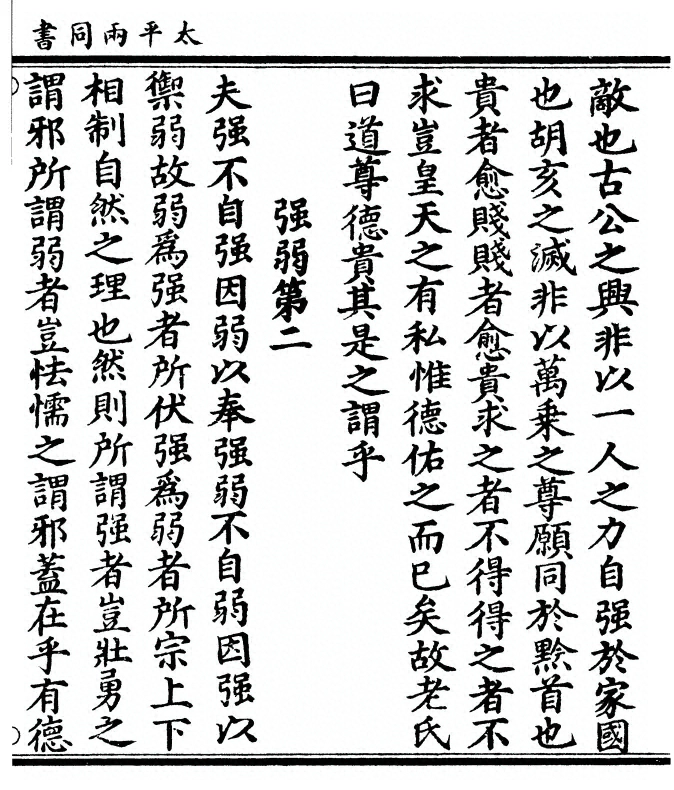 太平兩同書
敵也古公之興非以一人之力自强於家國
也胡亥之滅非以萬乗之尊願同於黔首也
貴者愈賤賤者愈貴求之者不得得之者不
求豈皇天之有私惟德佑之而已矣故老氏
曰道尊德貴其是之謂乎
强弱第二
夫强不自强因弱以奉强弱不自弱因强以
禦弱故弱爲强者所伏强爲弱者所宗上下
相制自然之理也然則所謂强者豈壯勇之
謂邪所謂弱者豈怯懦之謂邪蓋在乎有德